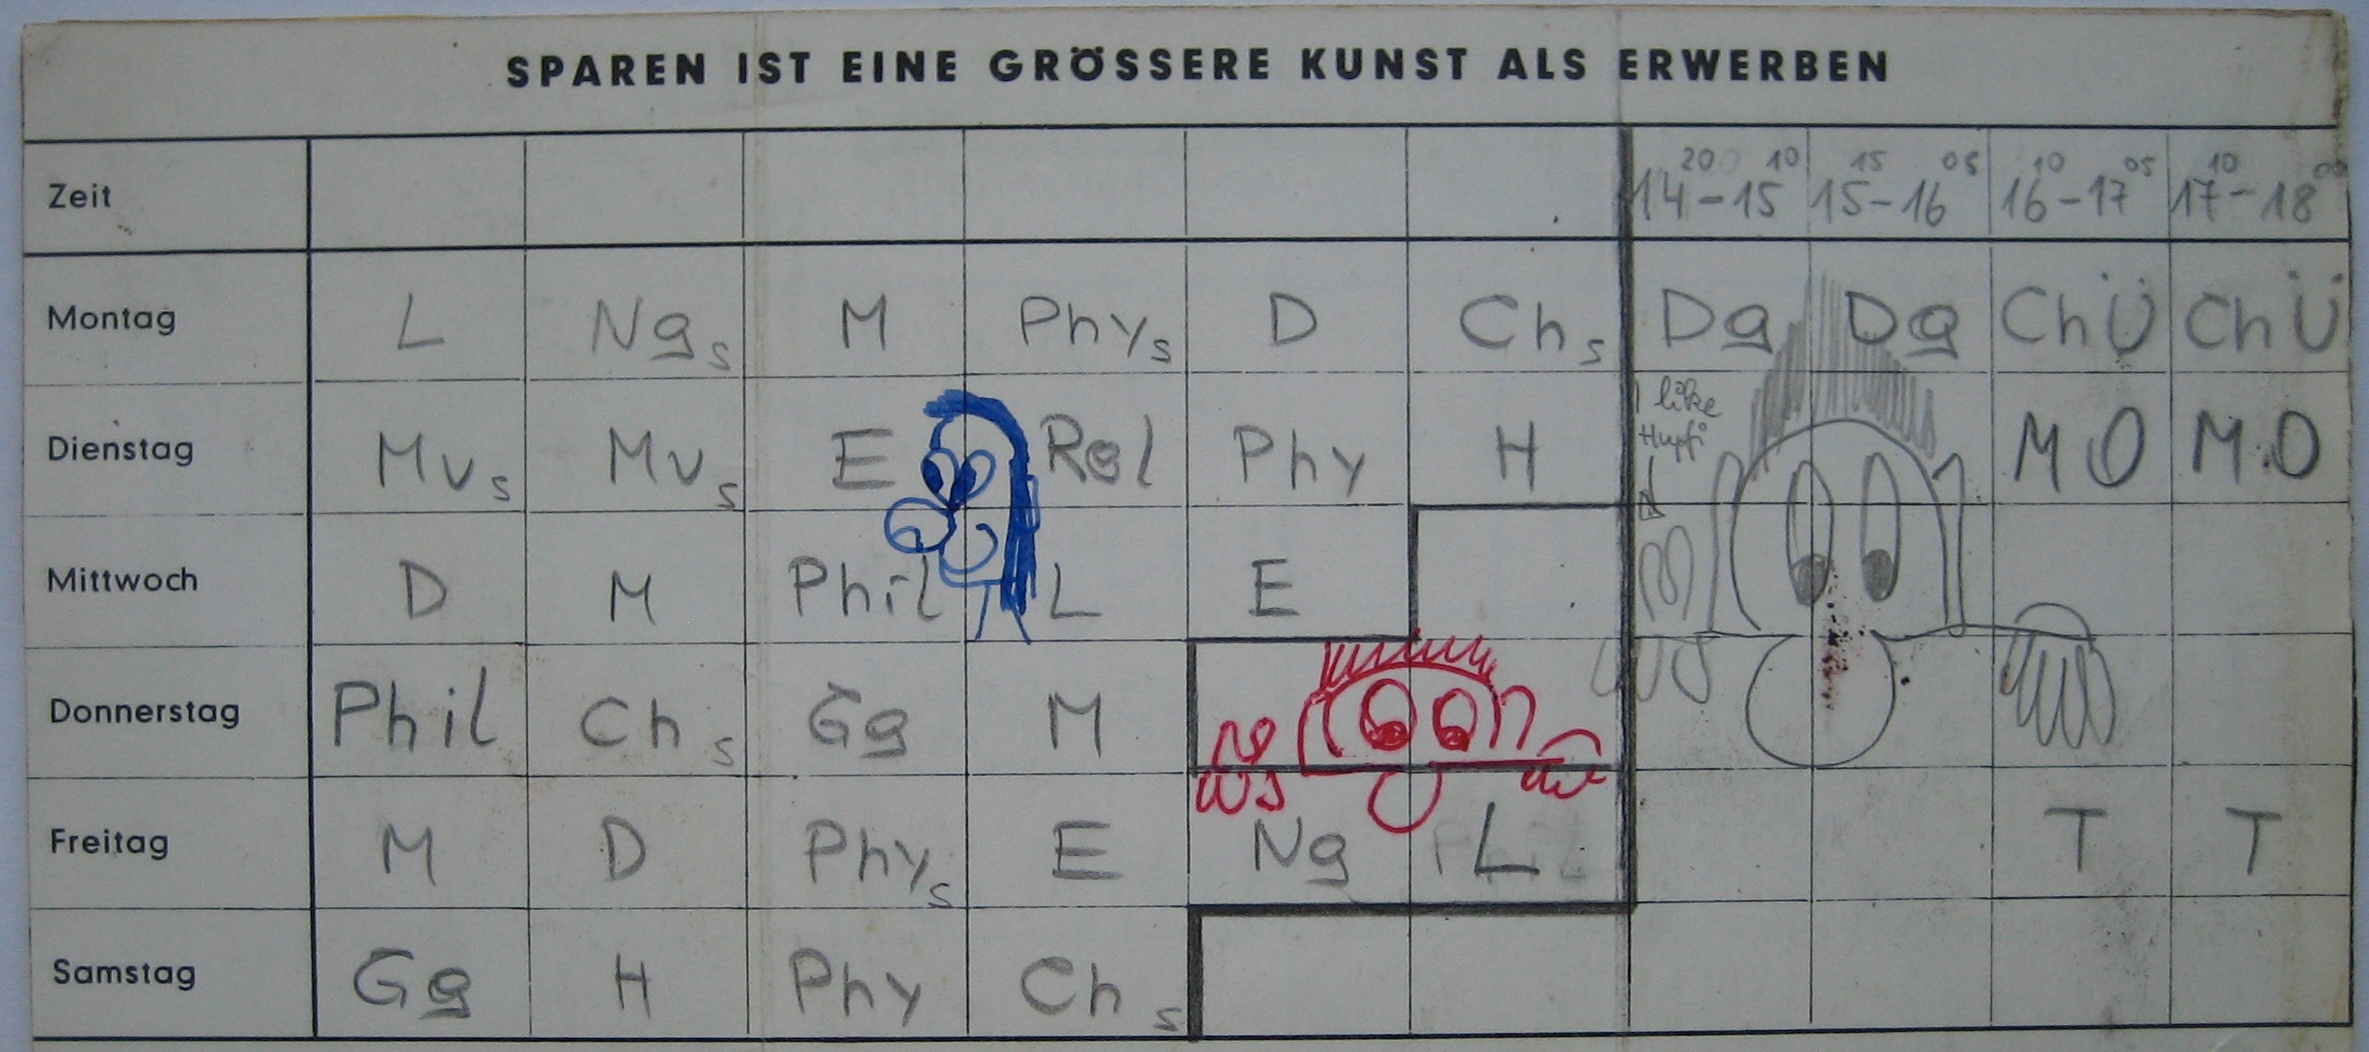 SPAREN IST EINE GRÖSSERE KUNST ALS ERWERBEN
Zeit 14²⁰-15¹⁰ 15¹⁵-16⁰⁵ 16¹⁰-17⁰⁵ 17¹⁰-18⁰⁰
Montag L Ngs M Physs D Chs Dg Dg ChÜ ChÜ
Dienstag Mus Mus E Rel Phy H I like Hupfi MO MO
Mittwoch D M Phil L E
Donnerstag Phil Chs Gg M
Freitag M D Phys E Ng L T T
Samstag Gg H Phy Chs